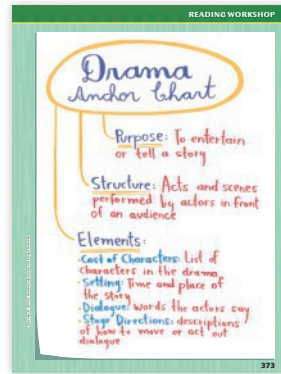 READING WORKSHOP
Drama
Anchor Chart
Purpose: To entertain
or tell a story
Structure: Acts and scenes
performed by actors in front
of an audience
Elements:
• Cast of Characters: List of
characters in the drama
• Setting: Time and place of
the story
• Dialogue: words the actors say
• Stage Directions: descriptions
of how to move or act out
dialogue
373